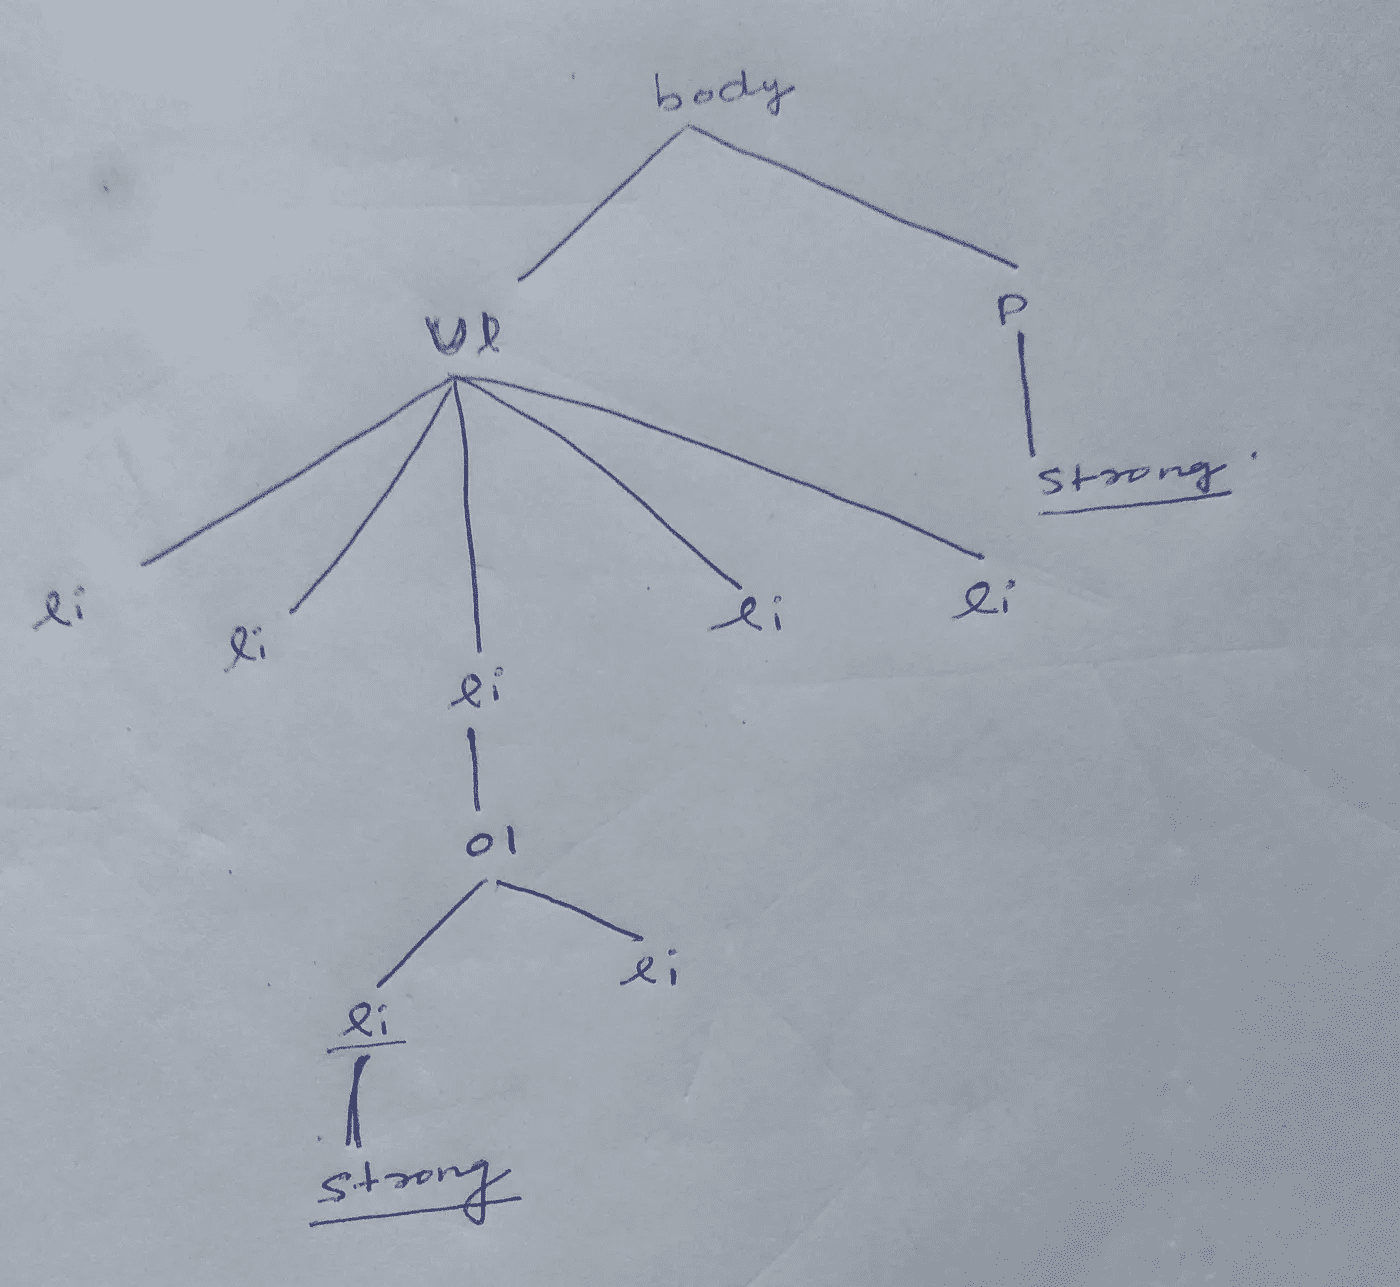 body
ul
p
strong
li
li
li
li
li
ol
li
li
strong